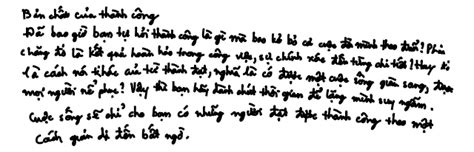 Bản chất của thành công
Đã bao giờ bạn tự hỏi thành công là gì mà bao kẻ bỏ cả cuộc đời mình theo đuổi? Phải
chăng đó là kết quả hoàn hảo trong công việc, sự chính xác đến từng chi tiết? Hay đó
là cách nói khác của từ thành đạt, nghĩa là có được một cuộc sống giàu sang, được
mọi người nể phục? Vậy thì bạn hãy dành chút thời gian để lặng mình suy ngẫm.
Cuộc sống sẽ chỉ cho bạn có những người đạt được thành công theo một
cách giản dị đến bất ngờ.